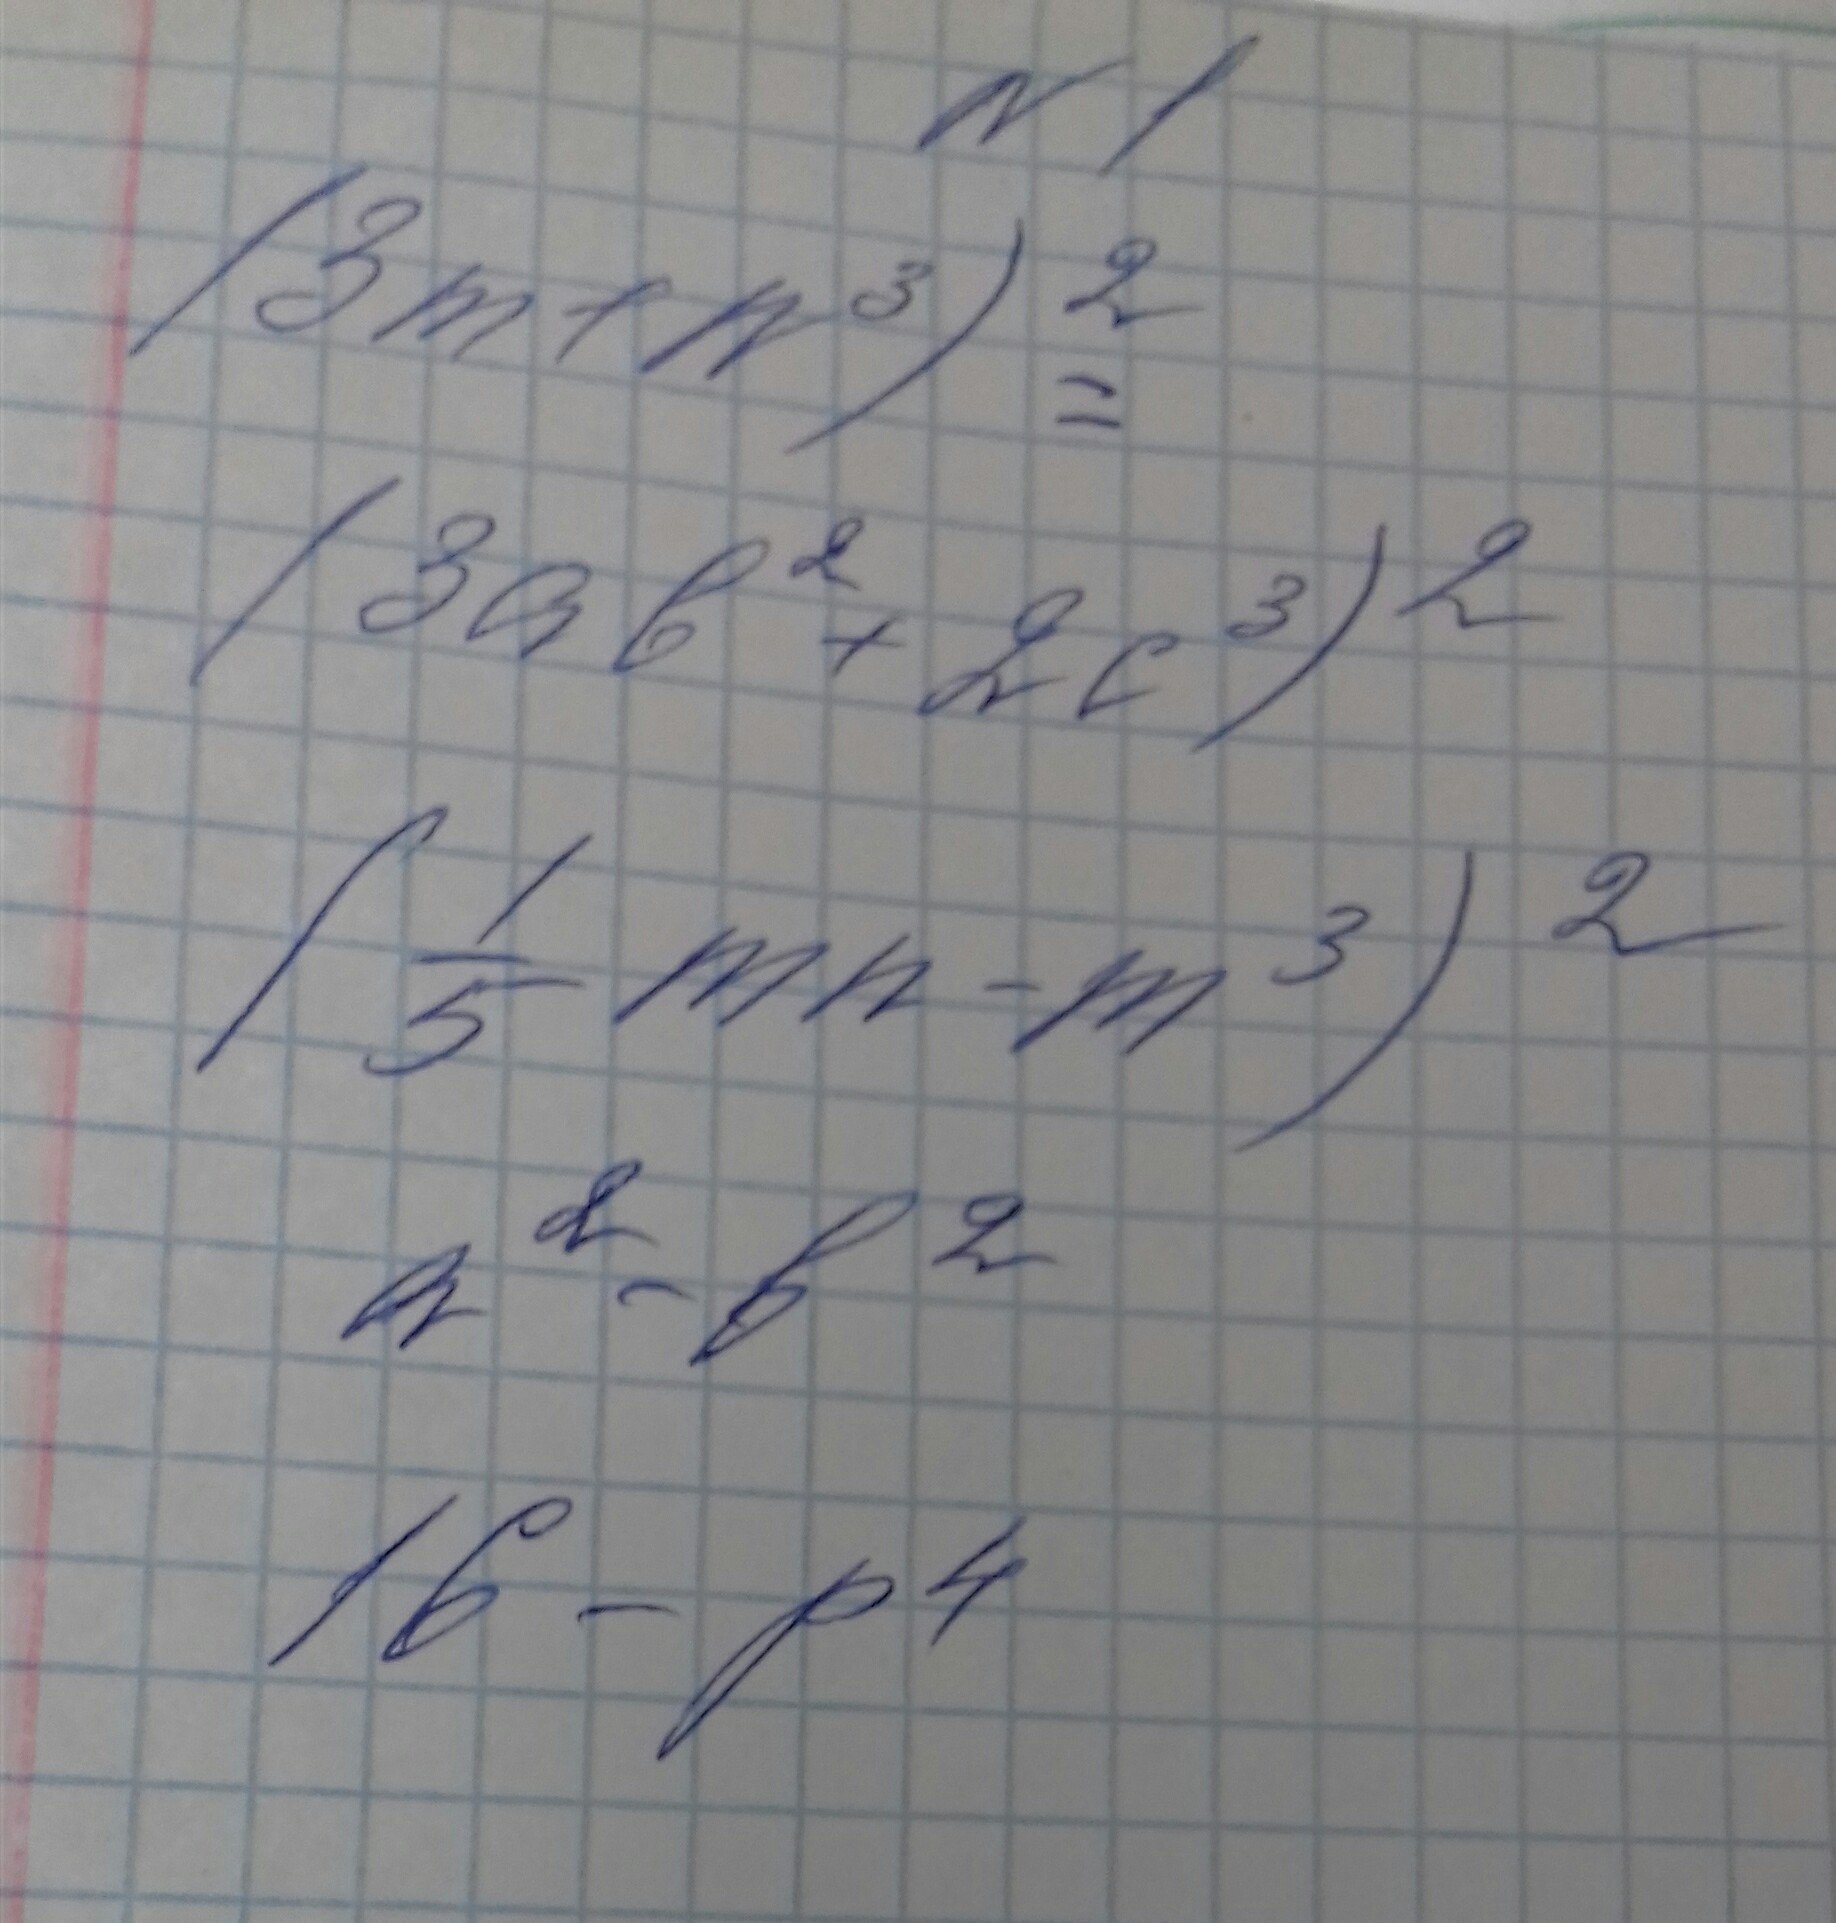 N 1
(3m+n³)² =
(3ab² + 2c³)²
(1/5 mn - m³)²
a² - b²
16 - p⁴